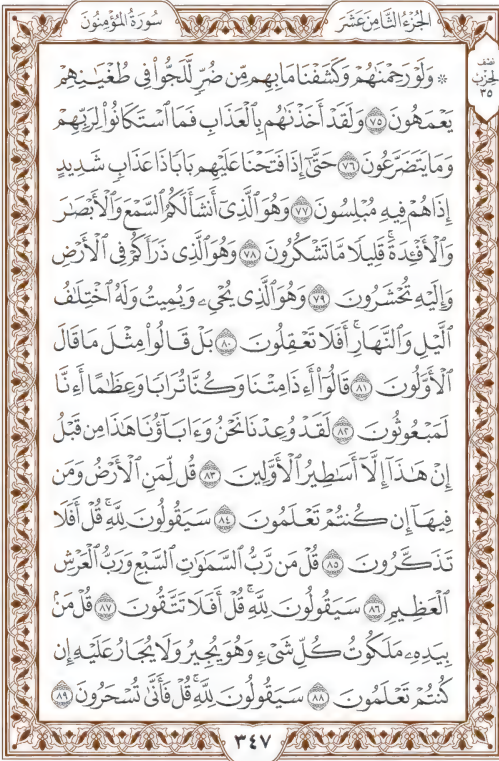 سُورَةُ المُؤْمِنُون
الجُزْءُ الثَّامِنَ عَشَرَ
نصف
الحزب
٣٥
۞ وَلَوْ رَحِمْنَٰهُمْ وَكَشَفْنَا مَا بِهِم مِّن ضُرٍّ لَّلَجُّوا۟ فِى طُغْيَٰنِهِمْ
يَعْمَهُونَ ٧٥ وَلَقَدْ أَخَذْنَٰهُم بِٱلْعَذَابِ فَمَا ٱسْتَكَانُوا۟ لِرَبِّهِمْ
وَمَا يَتَضَرَّعُونَ ٧٦ حَتَّىٰٓ إِذَا فَتَحْنَا عَلَيْهِم بَابًا ذَا عَذَابٍ شَدِيدٍ
إِذَا هُمْ فِيهِ مُبْلِسُونَ ٧٧ وَهُوَ ٱلَّذِىٓ أَنشَأَ لَكُمُ ٱلسَّمْعَ وَٱلْأَبْصَٰرَ
وَٱلْأَفْـِٔدَةَ ۚ قَلِيلًا مَّا تَشْكُرُونَ ٧٨ وَهُوَ ٱلَّذِى ذَرَأَكُمْ فِى ٱلْأَرْضِ
وَإِلَيْهِ تُحْشَرُونَ ٧٩ وَهُوَ ٱلَّذِى يُحْىِۦ وَيُمِيتُ وَلَهُ ٱخْتِلَٰفُ
ٱلَّيْلِ وَٱلنَّهَارِ ۚ أَفَلَا تَعْقِلُونَ ٨٠ بَلْ قَالُوا۟ مِثْلَ مَا قَالَ
ٱلْأَوَّلُونَ ٨١ قَالُوٓا۟ أَءِذَا مِتْنَا وَكُنَّا تُرَابًا وَعِظَٰمًا أَءِنَّا
لَمَبْعُوثُونَ ٨٢ لَقَدْ وُعِدْنَا نَحْنُ وَءَابَآؤُنَا هَٰذَا مِن قَبْلُ
إِنْ هَٰذَآ إِلَّآ أَسَٰطِيرُ ٱلْأَوَّلِينَ ٨٣ قُل لِّمَنِ ٱلْأَرْضُ وَمَن
فِيهَآ إِن كُنتُمْ تَعْلَمُونَ ٨٤ سَيَقُولُونَ لِلَّهِ ۚ قُلْ أَفَلَا
تَذَكَّرُونَ ٨٥ قُلْ مَن رَّبُّ ٱلسَّمَٰوَٰتِ ٱلسَّبْعِ وَرَبُّ ٱلْعَرْشِ
ٱلْعَظِيمِ ٨٦ سَيَقُولُونَ لِلَّهِ ۚ قُلْ أَفَلَا تَتَّقُونَ ٨٧ قُلْ مَنۢ
بِيَدِهِۦ مَلَكُوتُ كُلِّ شَىْءٍ وَهُوَ يُجِيرُ وَلَا يُجَارُ عَلَيْهِ إِن
كُنتُمْ تَعْلَمُونَ ٨٨ سَيَقُولُونَ لِلَّهِ ۚ قُلْ فَأَنَّىٰ تُسْحَرُونَ ٨٩
٣٤٧